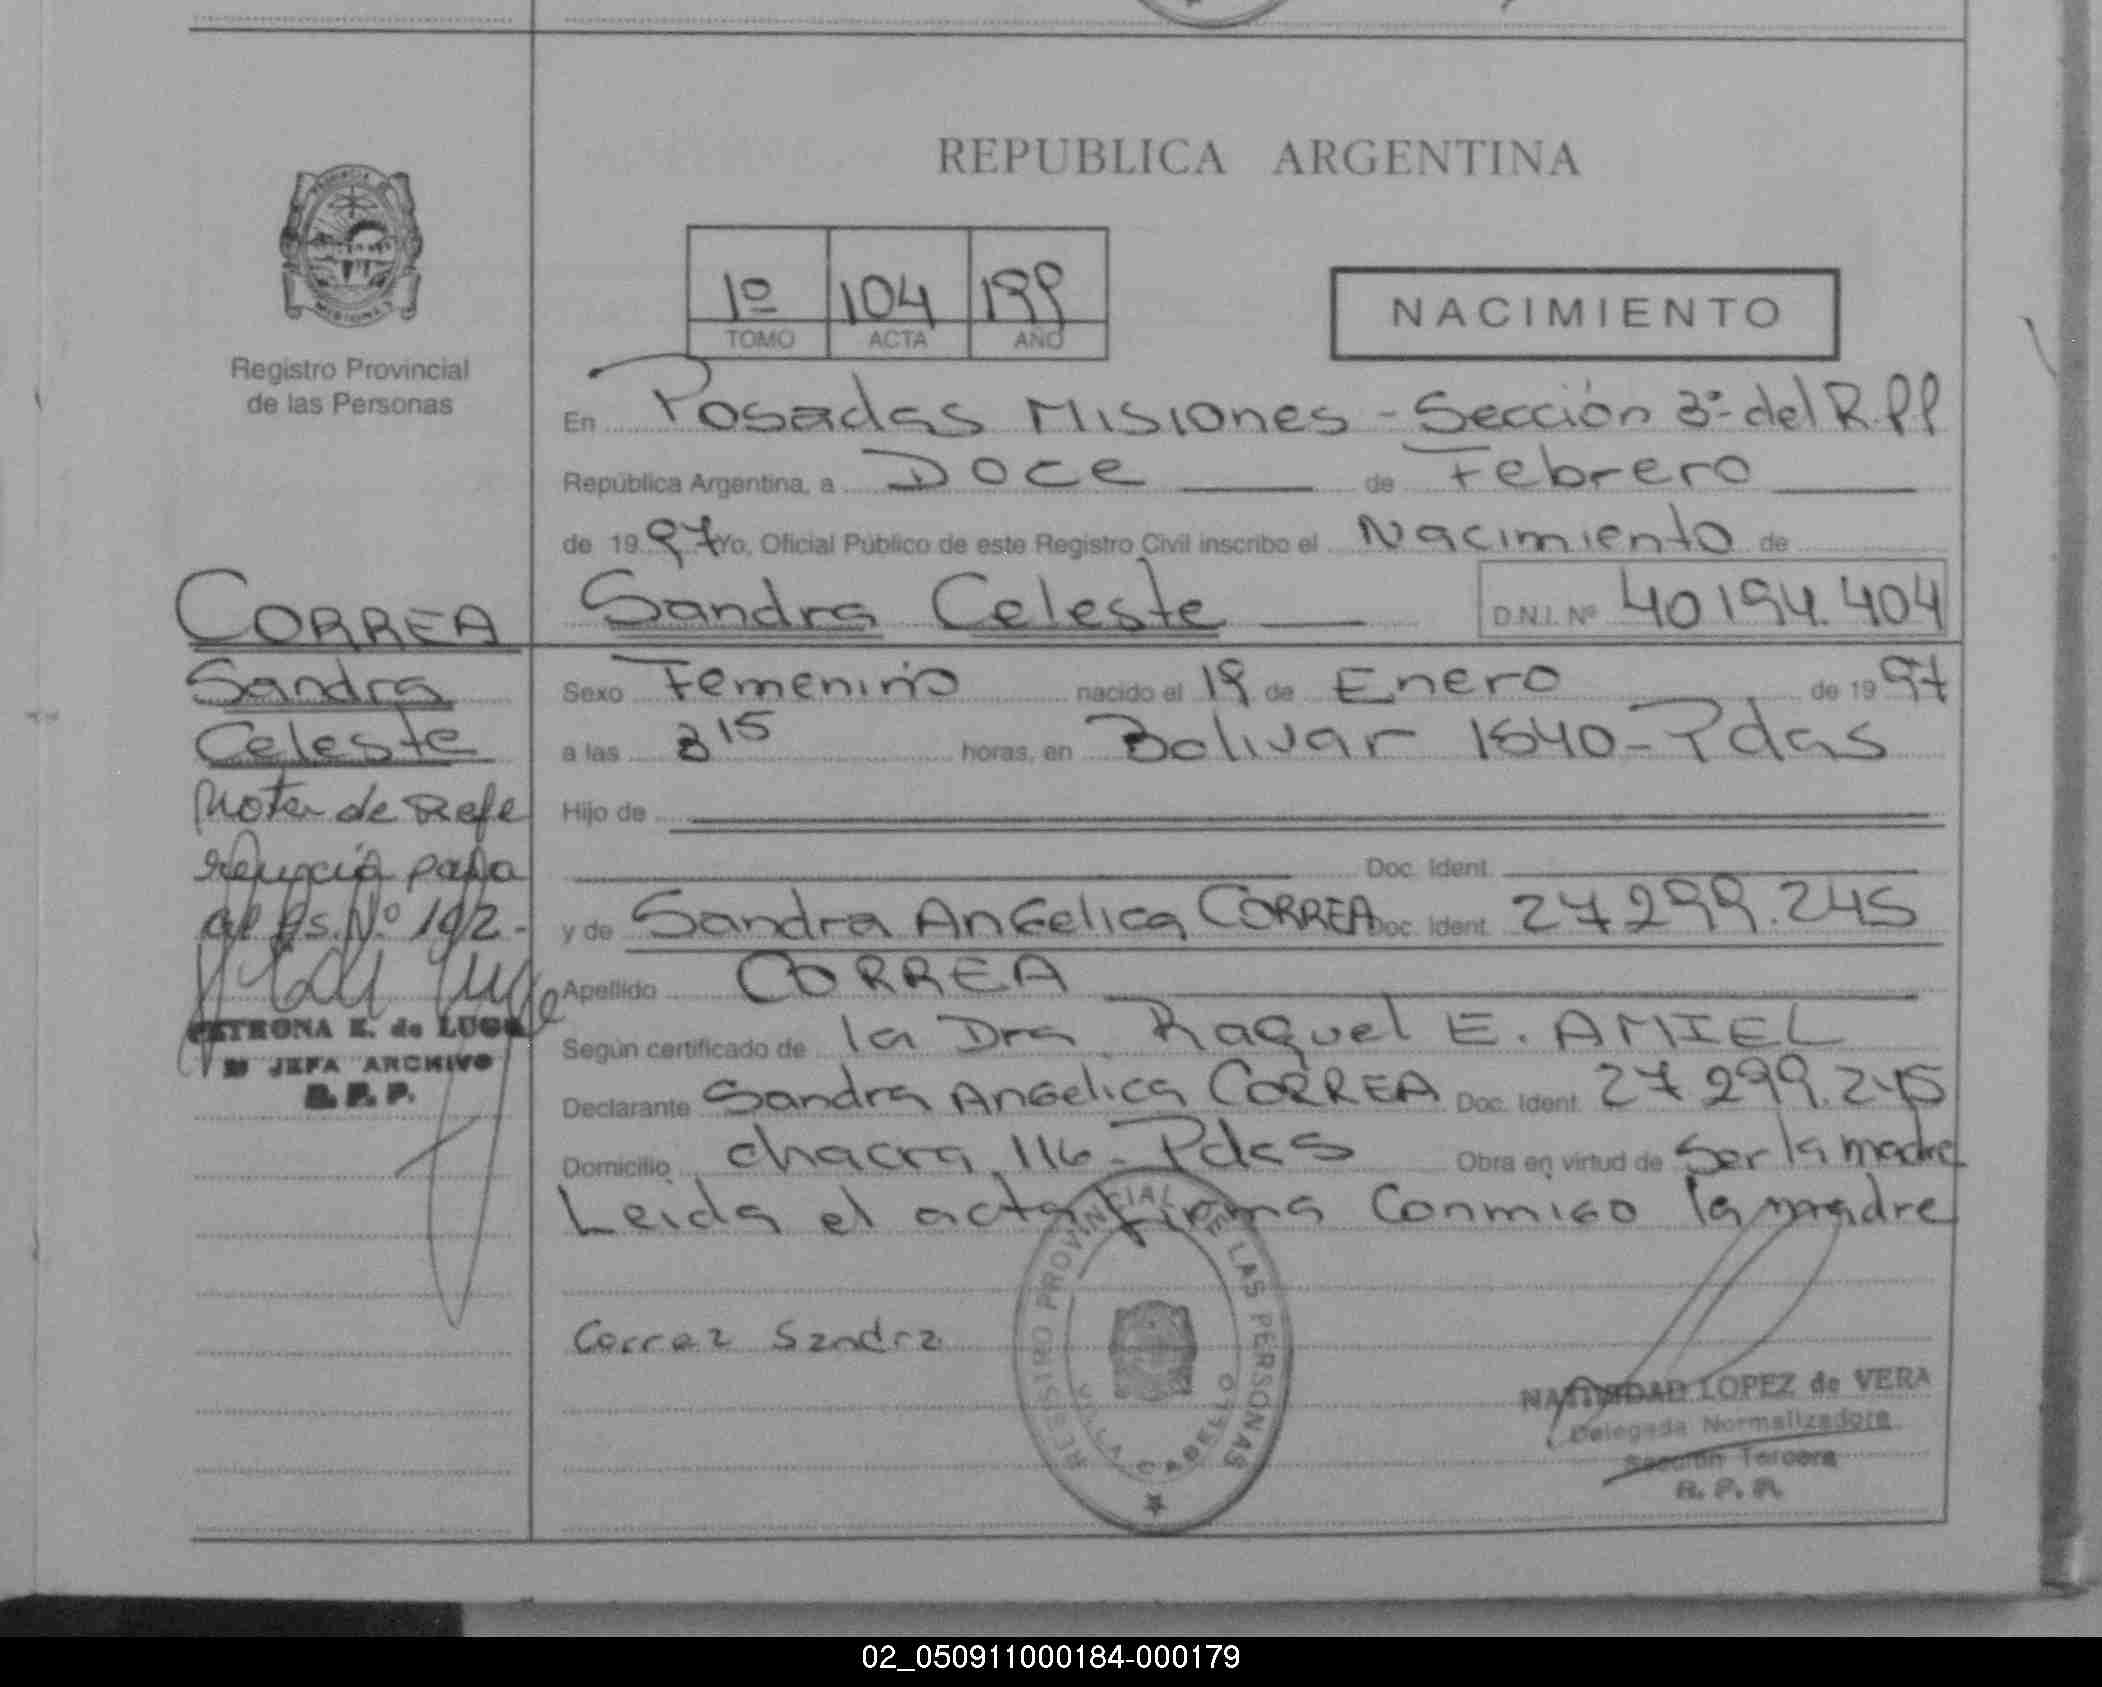 REPUBLICA ARGENTINA
1º 104 199
TOMO ACTA AÑO
NACIMIENTO
Registro Provincial
de las Personas
En Posadas Misiones - Sección 3º del R.P.P
República Argentina, a Doce de Febrero
de 1997 Yo, Oficial Público de este Registro Civil inscribo el Nacimiento de
Sandra Celeste D.N.I. Nº 40194.404
CORREA
Sandra
Celeste
Nota de Refe
rencia pasa
al Fs. Nº 192.-
PETRONA E. de LUGO
JEFA ARCHIVO
R.P.P.
Sexo Femenino nacido el 19 de Enero de 1997
a las 3 15 horas, en Bolivar 1840 - Pdas
Hijo de
Doc. Ident.
y de Sandra Angelica CORREA Doc. Ident. 27299.245
Apellido CORREA
Según certificado de la Dra Raquel E. AMIEL
Declarante Sandra Angelica CORREA Doc. Ident. 27299.245
Domicilio chacra 116 - Pdas Obra en virtud de Ser la madre
Leida el acta firma conmigo la madre
Correa Sandra
REGISTRO PROVINCIAL DE LAS PERSONAS
VILLA CABELLO
NATIVIDAD LOPEZ de VERA
Delegada Normalizadora
Sección Tercera
R.P.P.
02_050911000184-000179